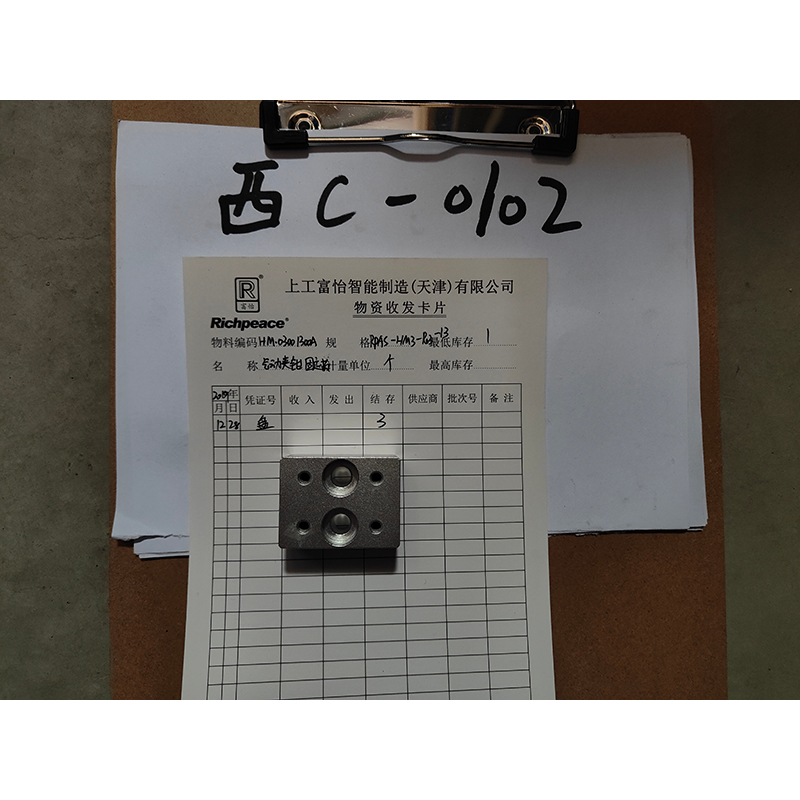 西C-0102
R
富怡
®
Richpeace®
上工富怡智能制造(天津)有限公司
物资收发卡片
物料编码HM-03001300A 规 格RPAS-HM3- -13最低库存1
名 称气动夹钳固定 计量单位个 最高库存
2019年 凭证号 收入 发出 结存 供应商 批次号 备注
月 日
12 28 盘 3